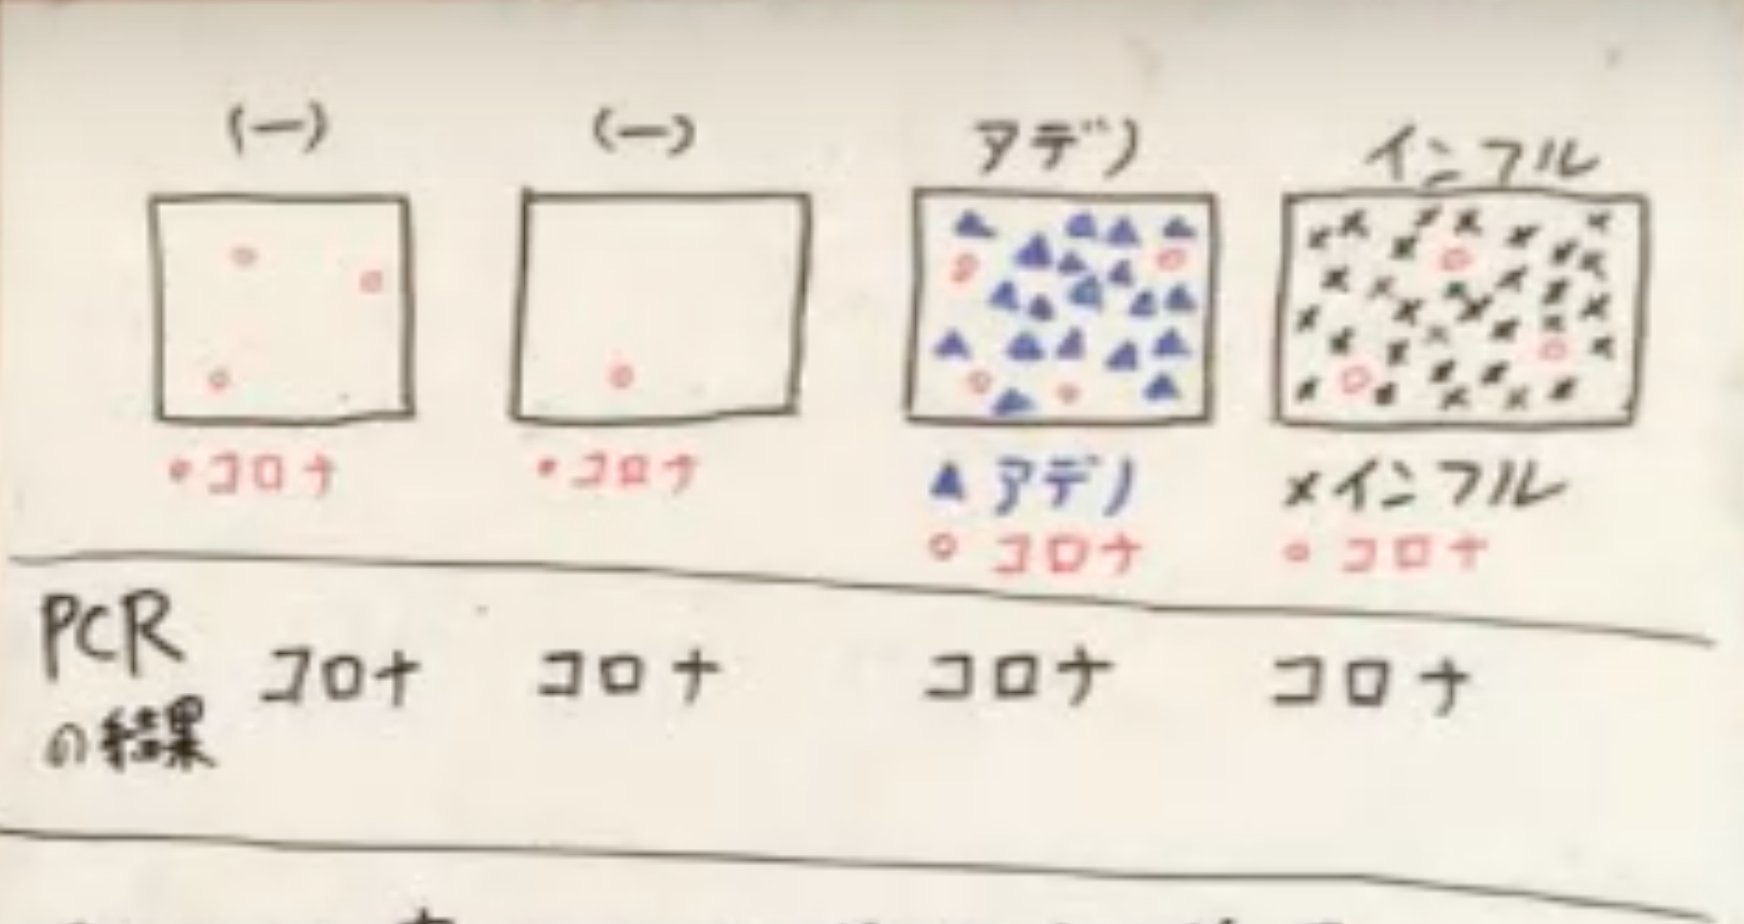 (ー) (ー) アデノ インフル
・コロナ ・コロナ ▲アデノ ×インフル
○コロナ ○コロナ
PCR
の結果 コロナ コロナ コロナ コロナ